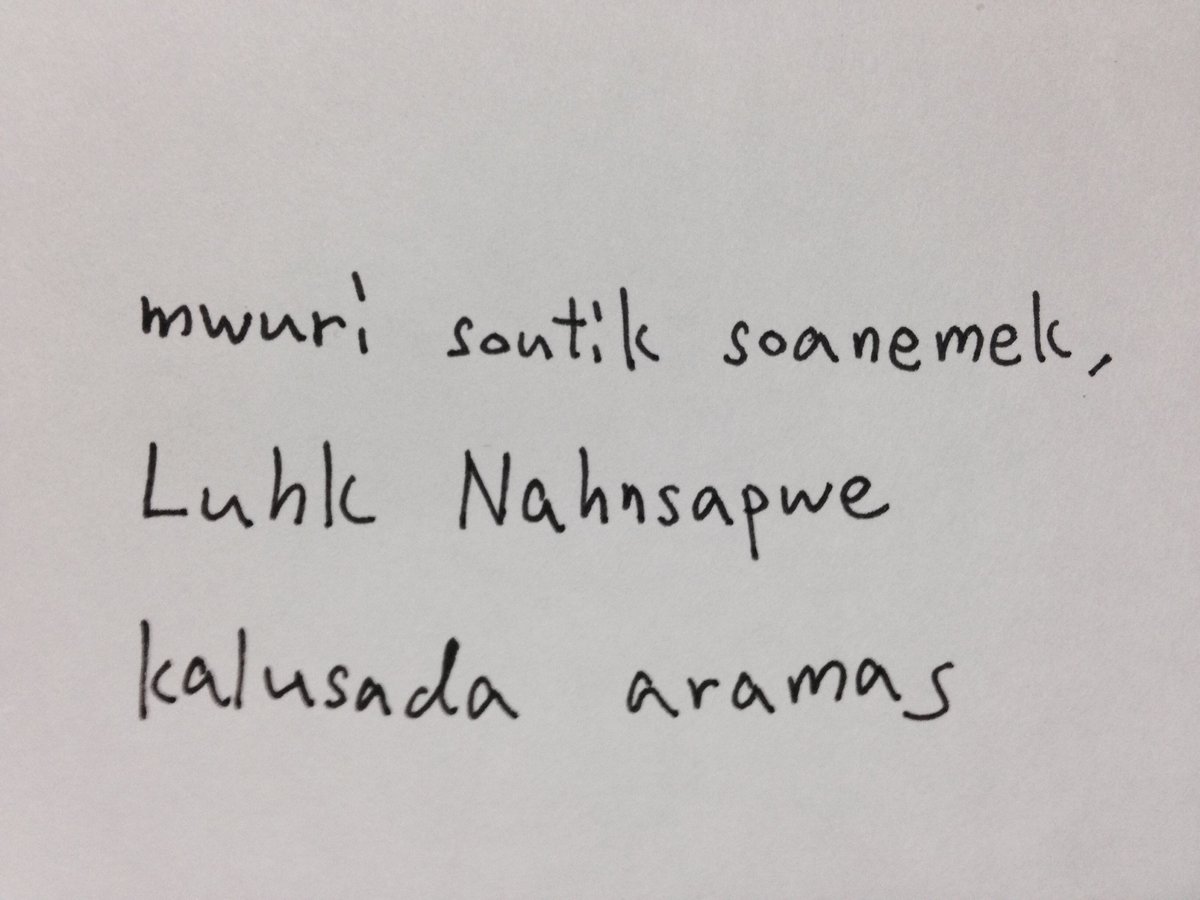 mwuri soutik soanemek,
Luhk Nahnsapwe
kalusada aramas